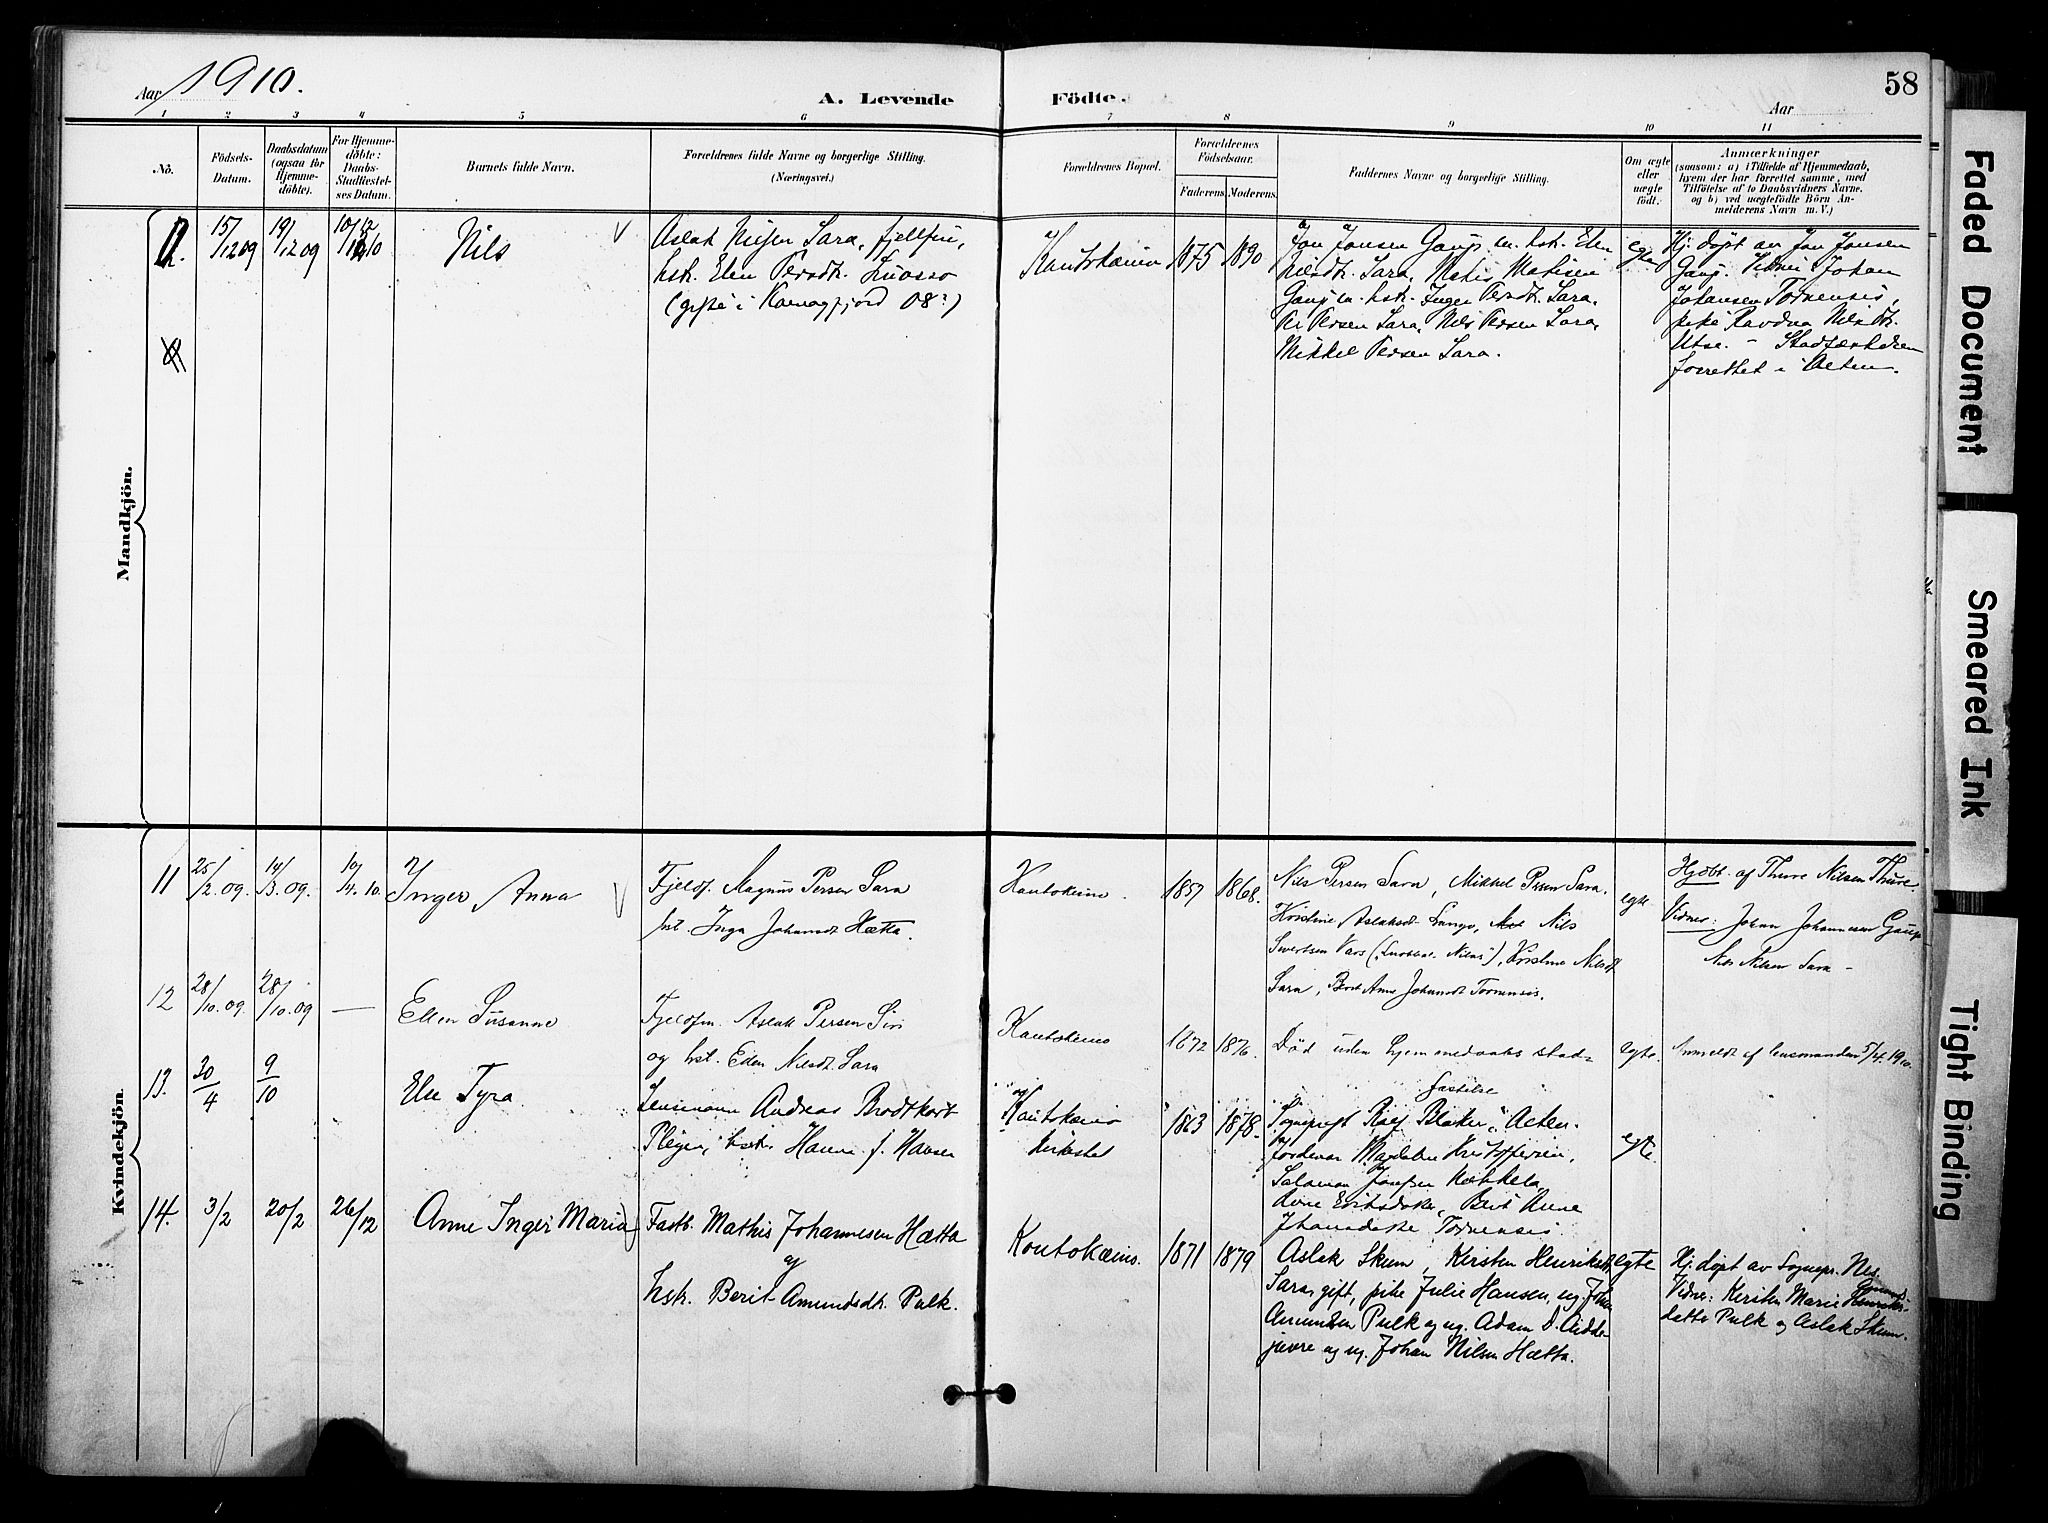 Aar 1910.
A. Levende Födte.
Aar
58
1 2 3 4 5 6 7 8 9 10 11
No.
Födsels-
Datum.
Daabsdatum
(ogsaa for
Hjemme-
döbte).
For Hjemme-
döbte:
Daabs-
Stadfæstel-
ses Datum.
Barnets fulde Navn.
Forældrenes fulde Navne og borgerlige Stilling.
(Næringsvei.)
Forældrenes Bopæl.
Forældrenes
Födselsaar.
Faderens. Moderens.
Faddernes Navne og borgerlige Stilling.
Om ægte
eller
uægte
födt.
Anmærkninger
(saasom: a) i Tilfælde af Hjemmedaab,
hvem der har forrettet samme, med
Tilföielse af to Daabsvidners Navne.
og b) ved uægtefödte Börn An-
melderens Navn m. V.)
Mandkjön.
15/12 09
19/12 09
Nils
Aslak Nilsen Sara, fjellfin,
hstr. Elen Persdtr.
(gifte i Kornagfjord 08?)
Kautokeino
1875
1890
Jon Jonsen Gaup m. hstr. Elen
Nilsdtr. Sara, Matis Matisen
Gaup m. hstr. Inger Persdtr. Sara,
Per Persen Sara, Nils Persen Sara,
Mikkel Persen Sara.
egte
Hj. døpt av Jon Jonsen
Gaup. Vidner: Johan
Johansen Tornensis,
pike Ravdna Nilsdtr.
Utse. – Stadfæstelsen
forrettet i Alten.
Kvindekjön.
11
25/2. 09.
14/3. 09.
10/4. 10.
Inger Anna
Fjeldf. Magnus Persen Sara
hst. Inga Johansdt Hætta.
Kautokeino.
1857
1868.
Nils Persen Sara, Mikkel Persen Sara.
Kristine Aslaksdt. Nils
Sivertsen Vars Kristine Nilsdt
Sara, Berit Anne Johansdt Tornensis.
egte
Hjdbt. af Thure Nilsen Thure.
Vidner: Johan Johannesen Gaup
Nils Nilsen Sara –
12
28/10. 09.
28/10. 09
—
Ellen Susanne
Fjeldfm. Aslak Persen Siri
og hst. Ellen Nilsdt. Sara
Kautokeino
1872
1876.
Død uden hjemmedaabs stad-
fæstelse
egte.
Anmeldt af lensmanden 5/4. 1910
13.
30/4
9/10
Else Tyra
Lensmann Andreas Brodtkorb
hustr. Hanna f. Hansen
Kautokeino
kirkested
1863
1878.
Sogneprest
jordemor Magdalene
Salamon Jonsen
Anne Berit Anne
Johansdatter Tornensis.
egte.
14.
3/2
20/2
26/12
Anne Inger Maria
Fastb. Mathis Johannesen Hætta
og
hstr. Berit Amundsdtr. Pulk.
Kautokeino.
1871
1879
Aslak Skum, Kirsten Henriksdt.
Sara, gift, pike Julie Hansen, ug. Johan
Amundsen Pulk og ug. Adam D. Aidde-
javre og ug. Johan Nilsen Hætta.
egte
Hj. døpt av Sognepr. Nes.
Vidner: Kirsten Marie Amunds-
datter Pulk og Aslak Skum.
Faded Document
Smeared Ink
Tight Binding